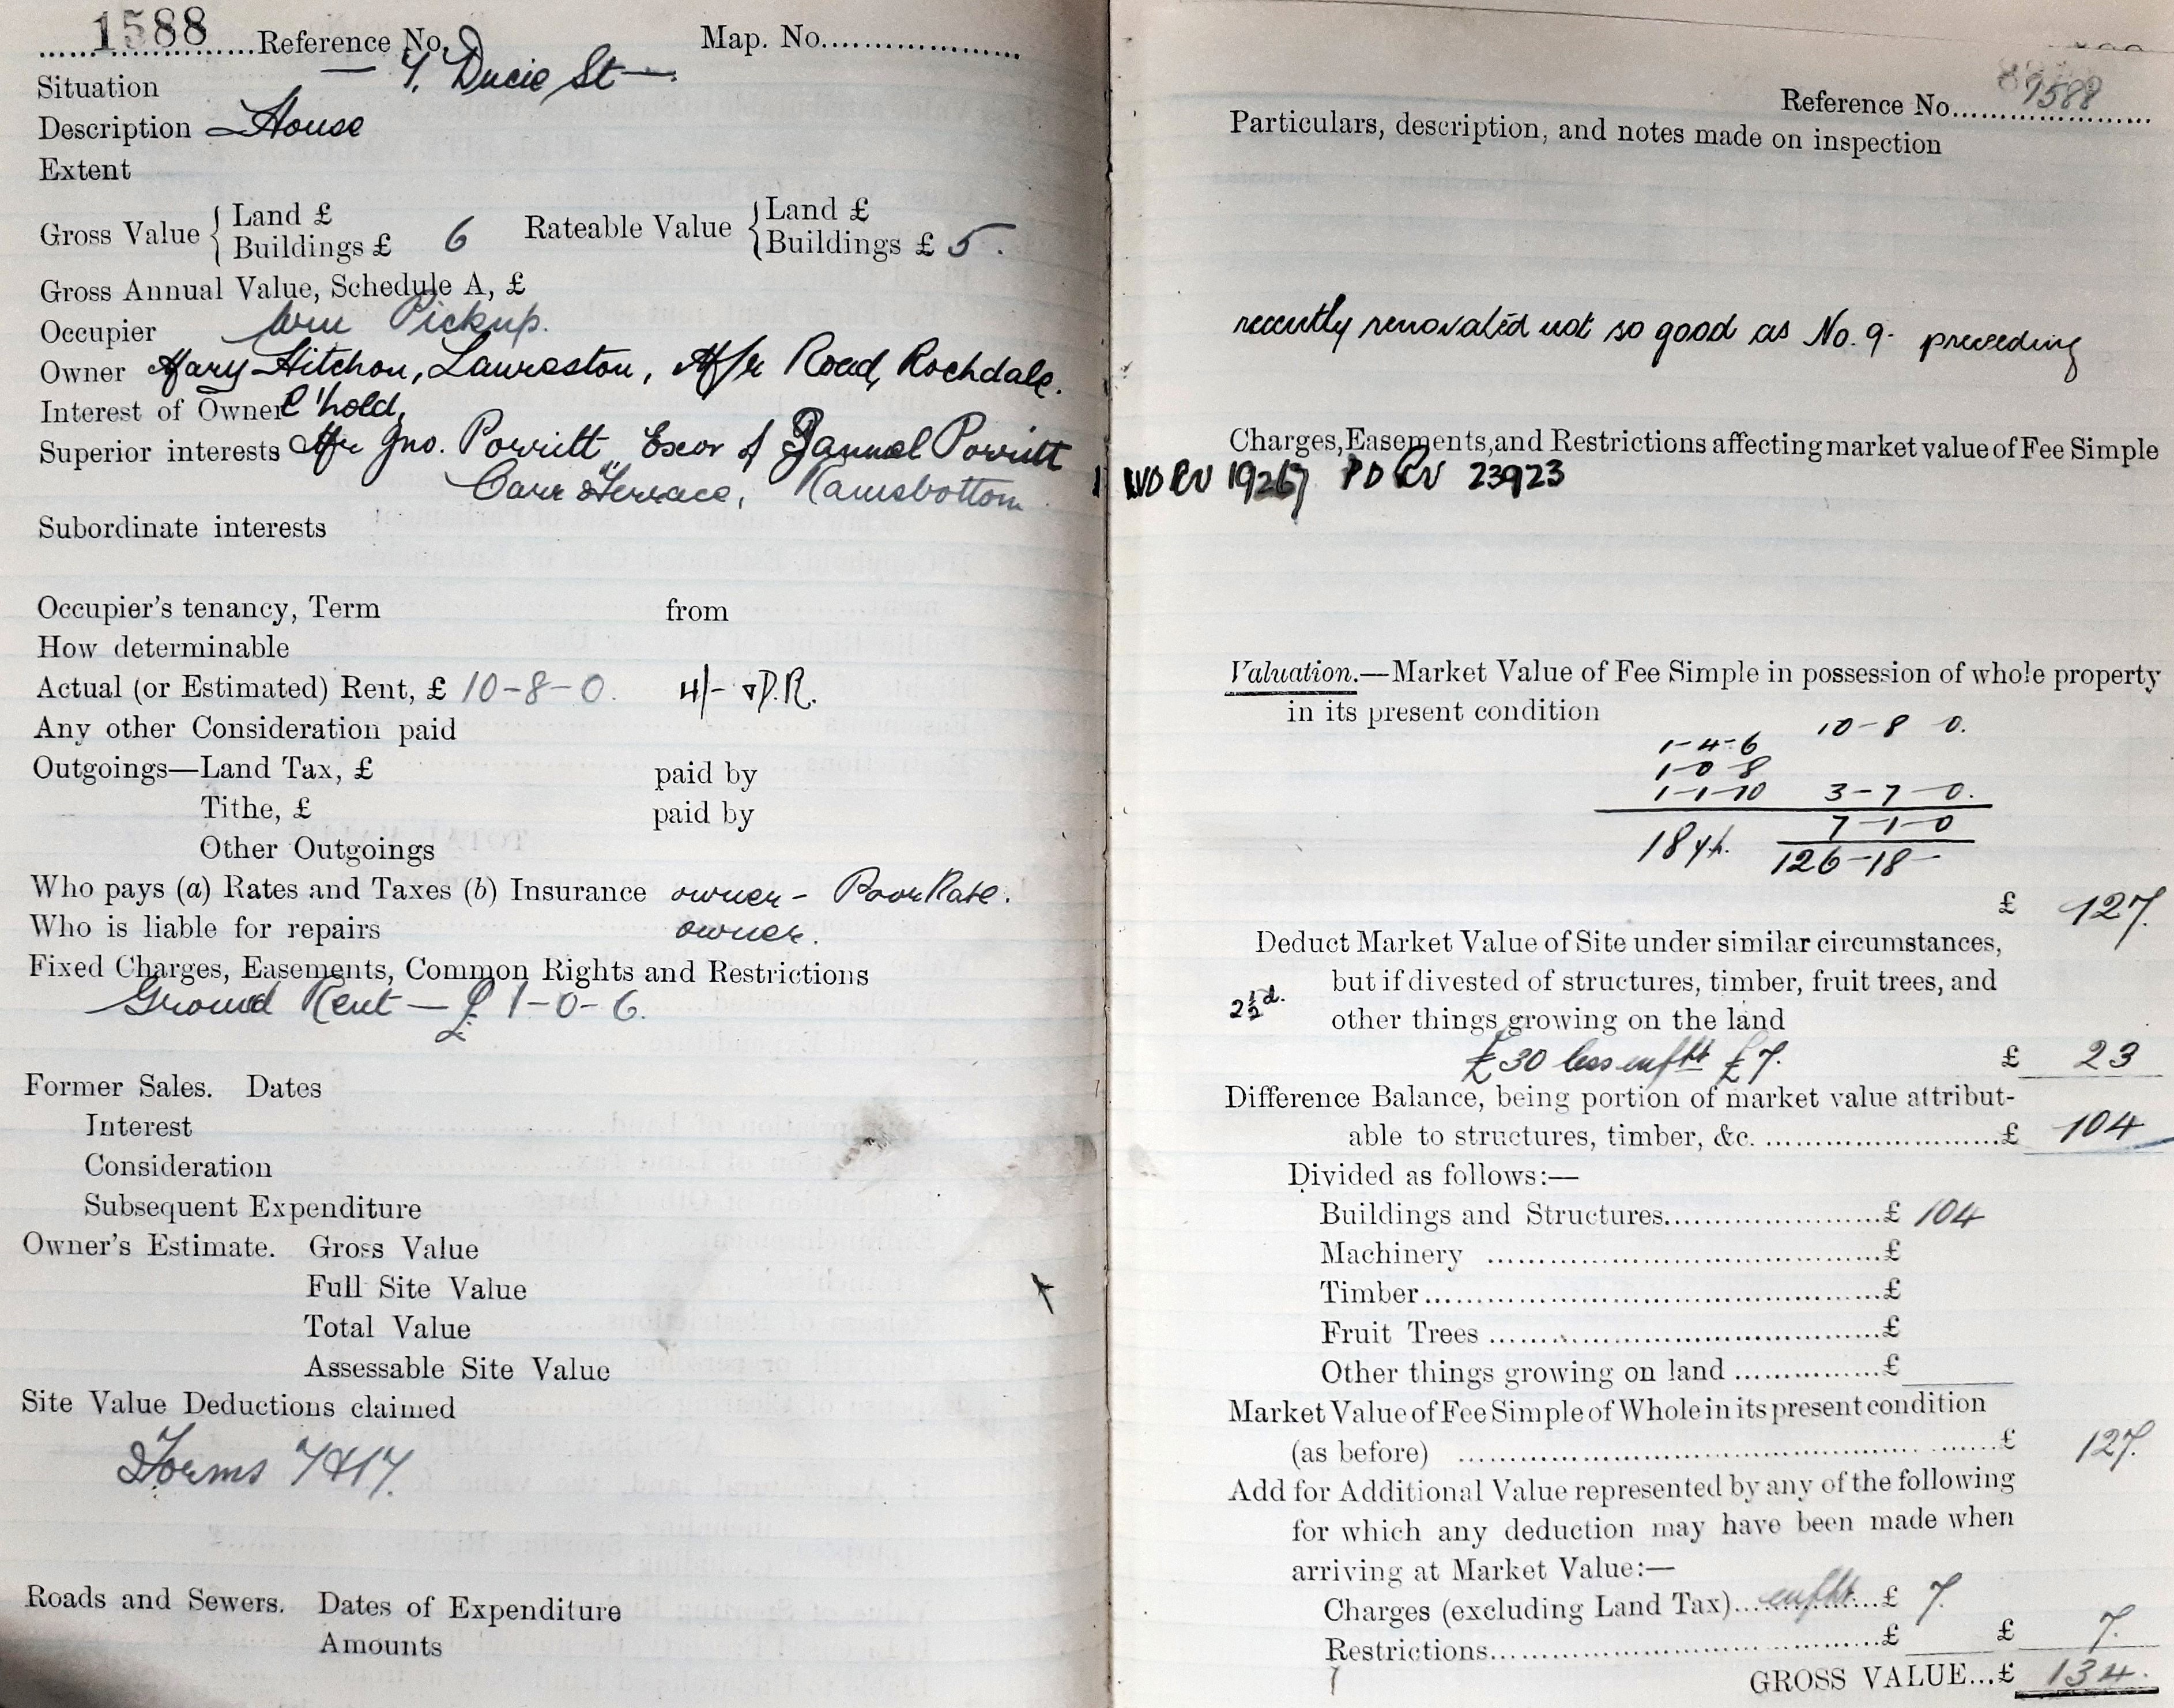 1588 Reference No. Map. No.
Situation 7. Ducie St
Description House
Extent
Gross Value { Land £
Buildings £ 6 Rateable Value { Land £
Buildings £ 5.
Gross Annual Value, Schedule A, £
Occupier Wm Pickup.
Owner Mary Hitchon, Laureston, Rochdale.
Interest of Owner L'hold,
Superior interests Mr Jno. Porritt Exor of Samuel Porritt
Carr Terrace, Ramsbottom
Subordinate interests
Occupier's tenancy, Term from
How determinable
Actual (or Estimated) Rent, £ 10-8-0. 4/- D.R.
Any other Consideration paid
Outgoings—Land Tax, £ paid by
Tithe, £ paid by
Other Outgoings
Who pays (a) Rates and Taxes (b) Insurance owner - Poor Rate.
Who is liable for repairs owner.
Fixed Charges, Easements, Common Rights and Restrictions
Ground Rent — £1-0-6.
Former Sales. Dates
Interest
Consideration
Subsequent Expenditure
Owner's Estimate. Gross Value
Full Site Value
Total Value
Assessable Site Value
Site Value Deductions claimed
Forms 7 & 17.
Roads and Sewers. Dates of Expenditure
Amounts
Reference No. 1588
Particulars, description, and notes made on inspection
recently renovated not so good as No. 9. preceding
Charges, Easements, and Restrictions affecting market value of Fee Simple
PD RV 23923
Valuation.—Market Value of Fee Simple in possession of whole property
in its present condition
10-8 0.
1-4-6
1-0 8
1-1-10 3-7-0.
7-1-0
18 yp. 126-18-
£ 127.
Deduct Market Value of Site under similar circumstances,
but if divested of structures, timber, fruit trees, and
2½d. other things growing on the land
£30 less £7. £ 23
Difference Balance, being portion of market value attribut-
able to structures, timber, &c. £ 104
Divided as follows:—
Buildings and Structures £ 104
Machinery £
Timber £
Fruit Trees £
Other things growing on land £
Market Value of Fee Simple of Whole in its present condition
(as before) £ 127.
Add for Additional Value represented by any of the following
for which any deduction may have been made when
arriving at Market Value:—
Charges (excluding Land Tax) £ 7.
Restrictions £ £ 7.
GROSS VALUE...£ 134.